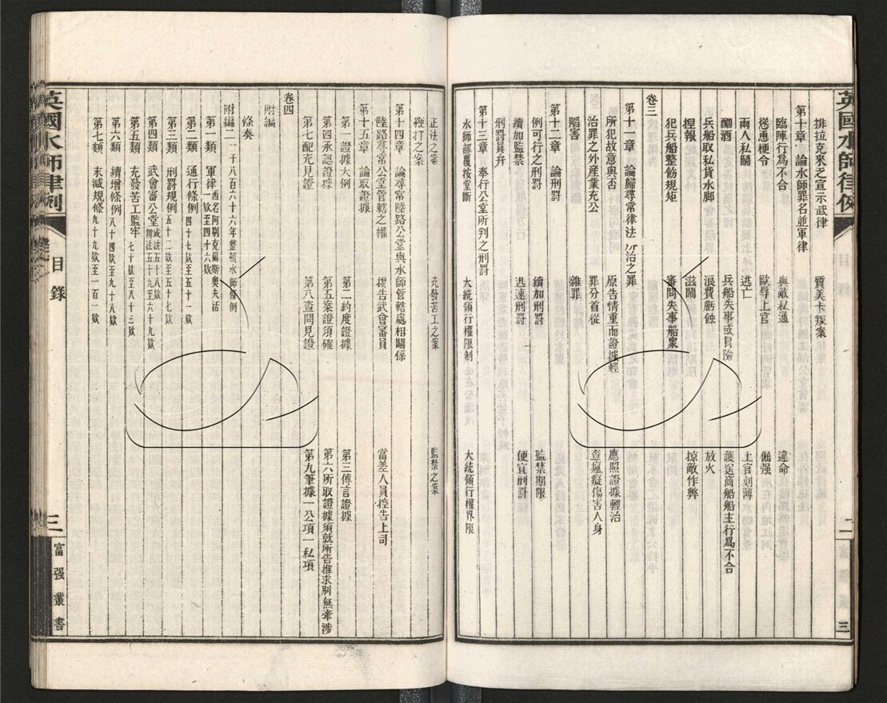 英國水師律例
目錄
二
三
排拉克來之宣示武律 質美卡叛案
第十章 論水師罪名並軍律
臨陣行爲不合 與敵私通 違命
慫恿梗令 歐辱上官 倔强
兩人私鬭 逃亡 上官刻薄
酗酒 兵船失事或冒險 護送商船船主行爲不合
兵船取私貨水脚 浪費虧蝕 放火
捏報 滋鬧 掠敵作弊
犯兵船整飭規矩 審問失事船案
卷三
第十一章 論歸尋常律法所治之罪
所犯故意與否 原告情重而證據輕 應照證據輕治
治罪之外産業充公 罪分首從 查瘋癡傷害人身
陷害 雜罪
第十二章 論刑罰
例可行之刑罰 續加刑罰 監禁期限
續加監禁 迅速刑罰 便宜刑罰
刑罰員弁
第十三章 奉行公堂所判之刑罰
水師部覆按堂斷 大統領行權限制 大統領行權界限
正法之案 充發苦工之案 監禁之案
鞭打之案
第十四章 論尋常陸路公堂與水師管轄處相關係
陸路尋常公堂管轄之權 控告武會審員 當差人員控告上司
第十五章 論取證據
第一證據大例 第二約度證據 第三傳言證據
第四承認證據 第五案證須確 第六所取證據須就所告推求別無牽涉
第七配充見證 第八查問見證 第九筆據一公項一私項
卷四
附編
條奏
附編二一千八百六十六年整頓水師條例
第一類 軍律西名阿剔克爾斯奧夫活一欵至四十六欵
第二類 通行條例四十七欵至五十一欵
第三類 刑罰規例五十二欵至五十七欵
第四類 武會審公堂
第五類 充發苦工監牢七十欵至八十三欵
第六類 續增條例八十四欵至九十八欵
第七類 末減規條九十九欵至一百一欵
英國水師律例
目錄
三
富强叢書